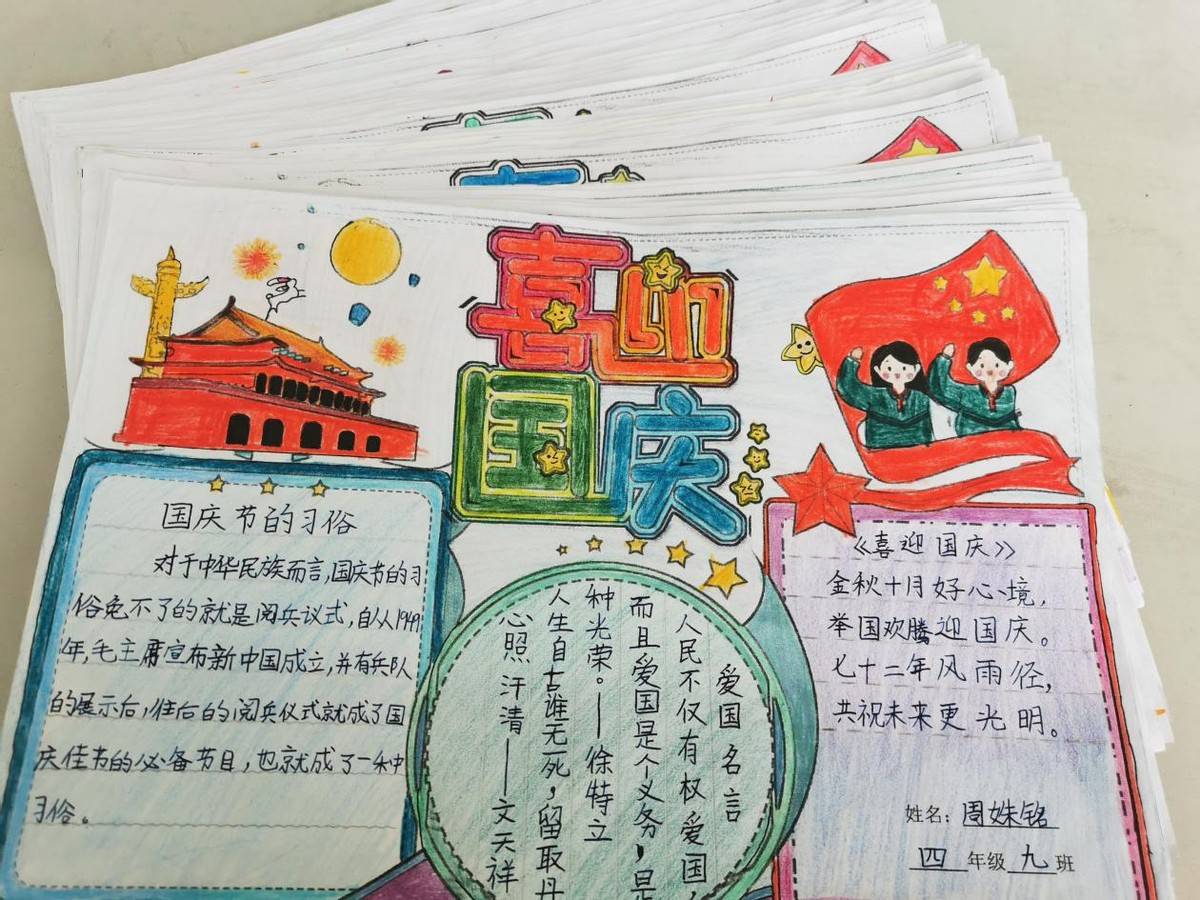 喜迎
国庆
国庆节的习俗
对于中华民族而言,国庆节的习
俗免不了的就是阅兵议式,自从1949
年,毛主席宣布新中国成立,并有兵队
的展示后,往后的阅兵仪式就成了国
庆佳节的必备节目,也就成了一种
习俗。
爱国名言
人民不仅有权爱国,
而且爱国是个义务,是
种光荣。——徐特立
人生自古谁无死,留取丹
心照汗清——文天祥
《喜迎国庆》
金秋十月好心境,
举国欢腾迎国庆。
七十二年风雨径,
共祝未来更光明。
姓名:周姝铭
四年级九班